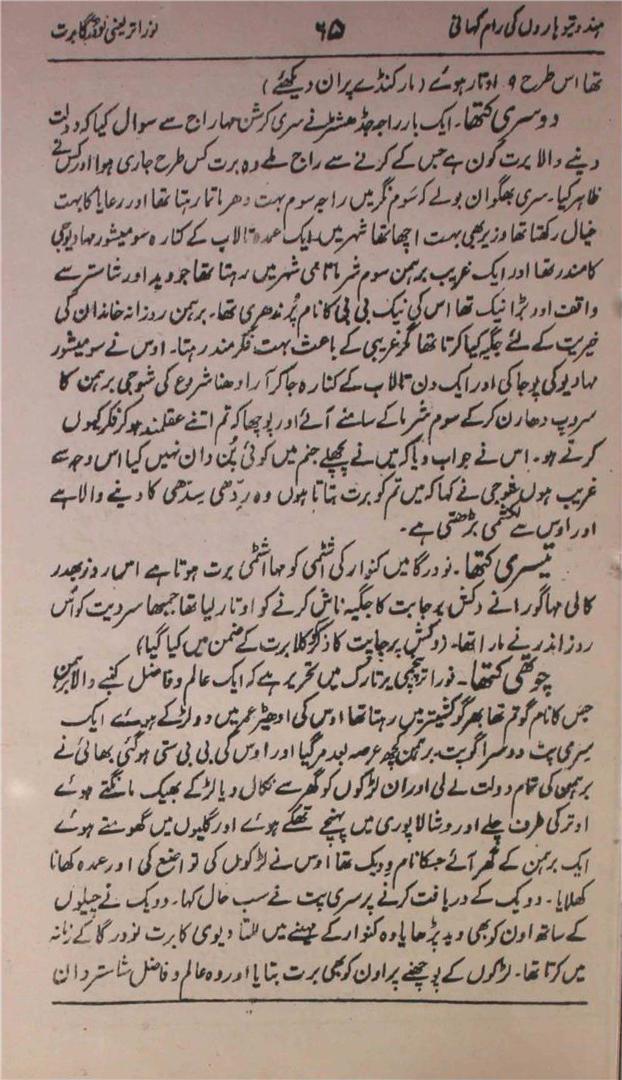 ہندو تیوہاروں کی رام کہانی ۶۵ نوراتر یعنی نودرگا برت
تھا اس طرح ۹ اوتار ہوئے (مارکنڈے پران دیکھئے)
دوسری کتھا۔ ایک بار راجہ جدھشٹر نے سری کرشن مہاراج سے سوال کیا کہ دولت
دینے والا برت کون ہے جس کے کرنے سے راج ملے وہ برت کس طرح جاری ہوا اور کس نے
ظاہر کیا۔ سری بھگوان بولے کہ سوم نگر میں راجہ سوم بہت دھرماتما رہتا تھا اور رعایا کا بہت
خیال رکھتا تھا وزیر بھی بہت اچھا تھا شہر میں ایک عمدہ تالاب کے کنارہ سومیشور مہادیوجی
کا مندر تھا اور ایک غریب برہمن سوم شرما نامی شہر میں رہتا تھا جو وید اور شاستر سے
واقف اور بڑا نیک تھا اس کی نیک بی بی کا نام پُرندھری تھا۔ برہمن روزانہ خاندان کی
خیریت کے لئے جگیہ کیا کرتا تھا مگر غریبی کے باعث بہت فکرمند رہتا۔ اوس نے سومیشور
مہادیو کی پوجا کی اور ایک دن تالاب کے کنارہ جاکر آرادھنا شروع کی شوجی برہمن کا
سروپ دھارن کرکے سوم شرما کے سامنے آئے اور پوچھا کہ تم اتنے عقلمند ہوکر فکر کیوں
کرتے ہو۔ اس نے جواب دیا کہ میں نے پچھلے جنم میں کوئی پُن دان نہیں کیا اس وجہ سے
غریب ہوں شوجی نے کہا کہ میں تم کو برت بتاتا ہوں وہ رِدّھی سِدّھی کا دینے والا ہے
اور اوس سے لکشمی بڑھتی ہے۔
تیسری کتھا۔ نودرگا میں کنوار کی اشٹمی کو مہا اشٹمی برت ہوتا ہے اس روز بھدر
کالی مہا گورا نے دکش پرجاپت کا جگیہ ناش کرنے کو اوتار لیا تھا جمبھاسر دیت کو اُس
روز اندر نے مارا تھا۔ (دکش پرجاپت کا ذکر کوکلا برت کے ضمن میں کیا گیا)
چوتھی کتھا۔ نوراتر پنچمی پرتارک میں تحریر ہے کہ ایک عالم و فاضل کنبے والا برہمن
جس کا نام گوتم تھا بھرگوکشیتر میں رہتا تھا اوس کی ادھیڑ عمر میں دو لڑکے ہوئے ایک
سری پت دوسرا گوپت۔ برہمن کچھ عرصہ بعد مر گیا اور اوس کی بی بی ستی ہوگئی بھائی نے
برہمن کی تمام دولت لے لی اور ان لڑکوں کو گھر سے نکال دیا لڑکے بھیک مانگتے ہوئے
اوتر کی طرف چلے اور وشالاپوری میں پہنچے تھکے ہوئے اور گلیوں میں گھومتے ہوئے
ایک برہمن کے گھر آئے جسکا نام وِدیک تھا اوس نے لڑکوں کی تواضع کی اور عمدہ کھانا
کھلایا۔ وِدیک کے دریافت کرنے پر سری پت نے سب حال کہا۔ وِدیک نے چیلوں
کے ساتھ اون کو بھی وید پڑھایا وہ کنوار کے مہینے میں للتا دیوی کا برت نودرگا کے زمانہ
میں کرتا تھا۔ لڑکوں کے پوچھنے پر اون کو بھی برت بتایا اور وہ عالم و فاضل شاستر دان